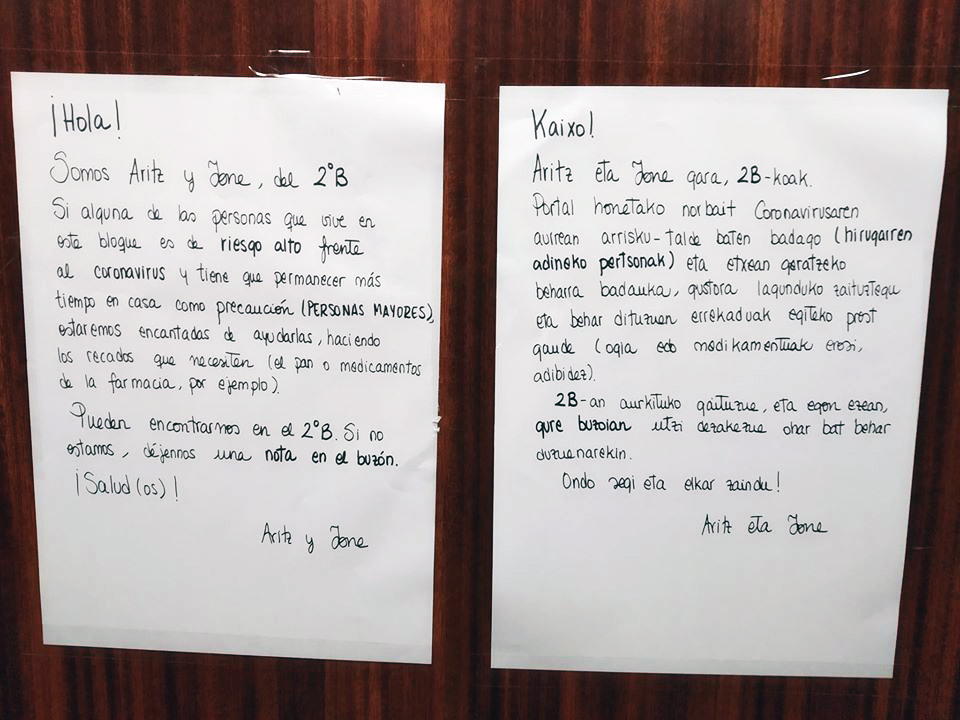 ¡Hola!
Somos Aritz y Jone, del 2ºB
Si alguna de las personas que vive en
este bloque es de riesgo alto frente
al coronavirus y tiene que permanecer más
tiempo en casa como precaución (PERSONAS MAYORES),
estaremos encantadas de ayudarlas, haciendo
los recados que necesiten (el pan o medicamentos
de la farmacia, por ejemplo).
Pueden encontrarnos en el 2ºB. Si no
estamos, déjennos una nota en el buzón.
¡Salud(os)!
Aritz y Jone
Kaixo!
Aritz eta Jone gara, 2B-koak.
Portal honetako norbait Coronavirusaren
aurrean arrisku-talde baten badago (hirugarren
adineko pertsonak) eta etxean geratzeko
beharra badauka, gustora lagunduko zaituztegu
eta behar dituzuen errekaduak egiteko prest
gaude (ogia edo medikamentuak erosi,
adibidez).
2B-an aurkituko gaituzue, eta egon ezean,
gure buzoian utzi dezakezue ohar bat behar
duzuenarekin.
Ondo segi eta elkar zaindu!
Aritz eta Jone